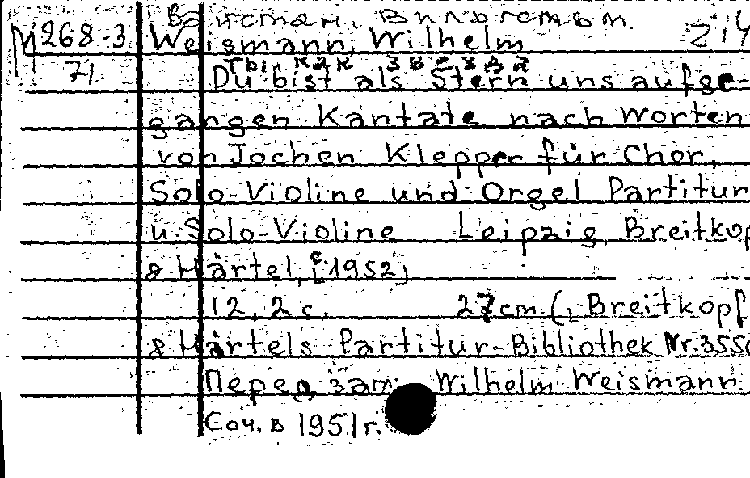 Вайсман, Вильгельм.
М 268-3 Weismann, Wilhelm 214
71 Ты как звезда
Du bist als Stern uns aufge-
gangen Kantate nach Worten
von Jochen Klepper für Chor,
Solo-Violine und Orgel Partitur
u. Solo-Violine Leipzig, Breitkop
& Härtel, [c 1952]
12, 2 с. 27cm (, Breitkopf
& Härtels Partitur-Bibliothek Nr. 355
Перед заг: Wilhelm Weismann
Соч. в 1951 г.